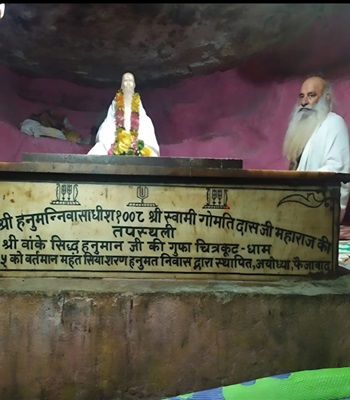 श्री हनुमन्निवासाधीश १००८ श्री स्वामी गोमति दास जी महाराज की
तपस्थली
श्री वांके सिद्ध हनुमान जी की गुफा चित्रकूट-धाम
५ को वर्तमान महंत सियाशरण हनुमत निवास द्वारा स्थापित, अयोध्या, फैजाबाद